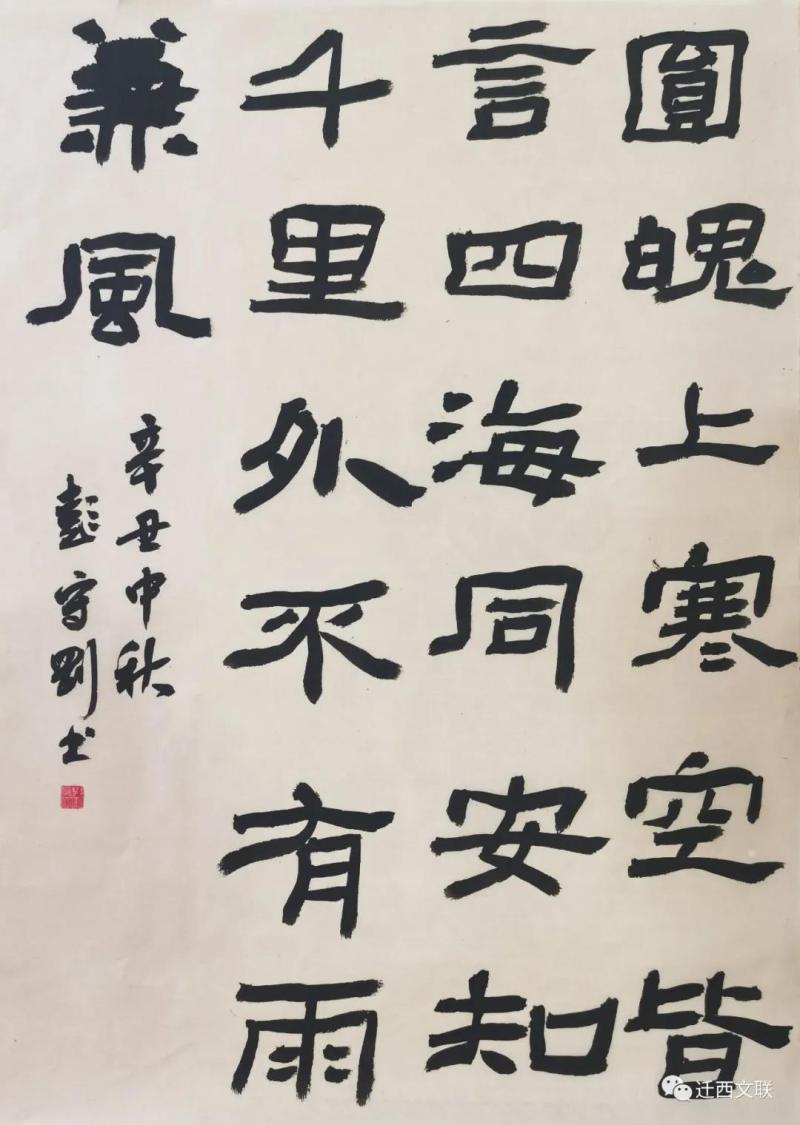 圓魄上寒空皆
言四海同安知
千里外不有雨
兼風
辛丑中秋
彭守剛书
迁西文联